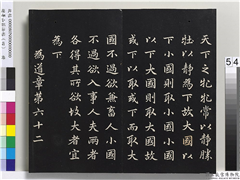 天下之牝牝常以靜勝
牡以靜為下故大國以
下小國則取小國小國
以下大國則取大國故
或下以取或下而取大
國不過欲兼畜人小國
不過欲入事人夫兩者
各得其所欲故大者宜
為下
為道章第六十二